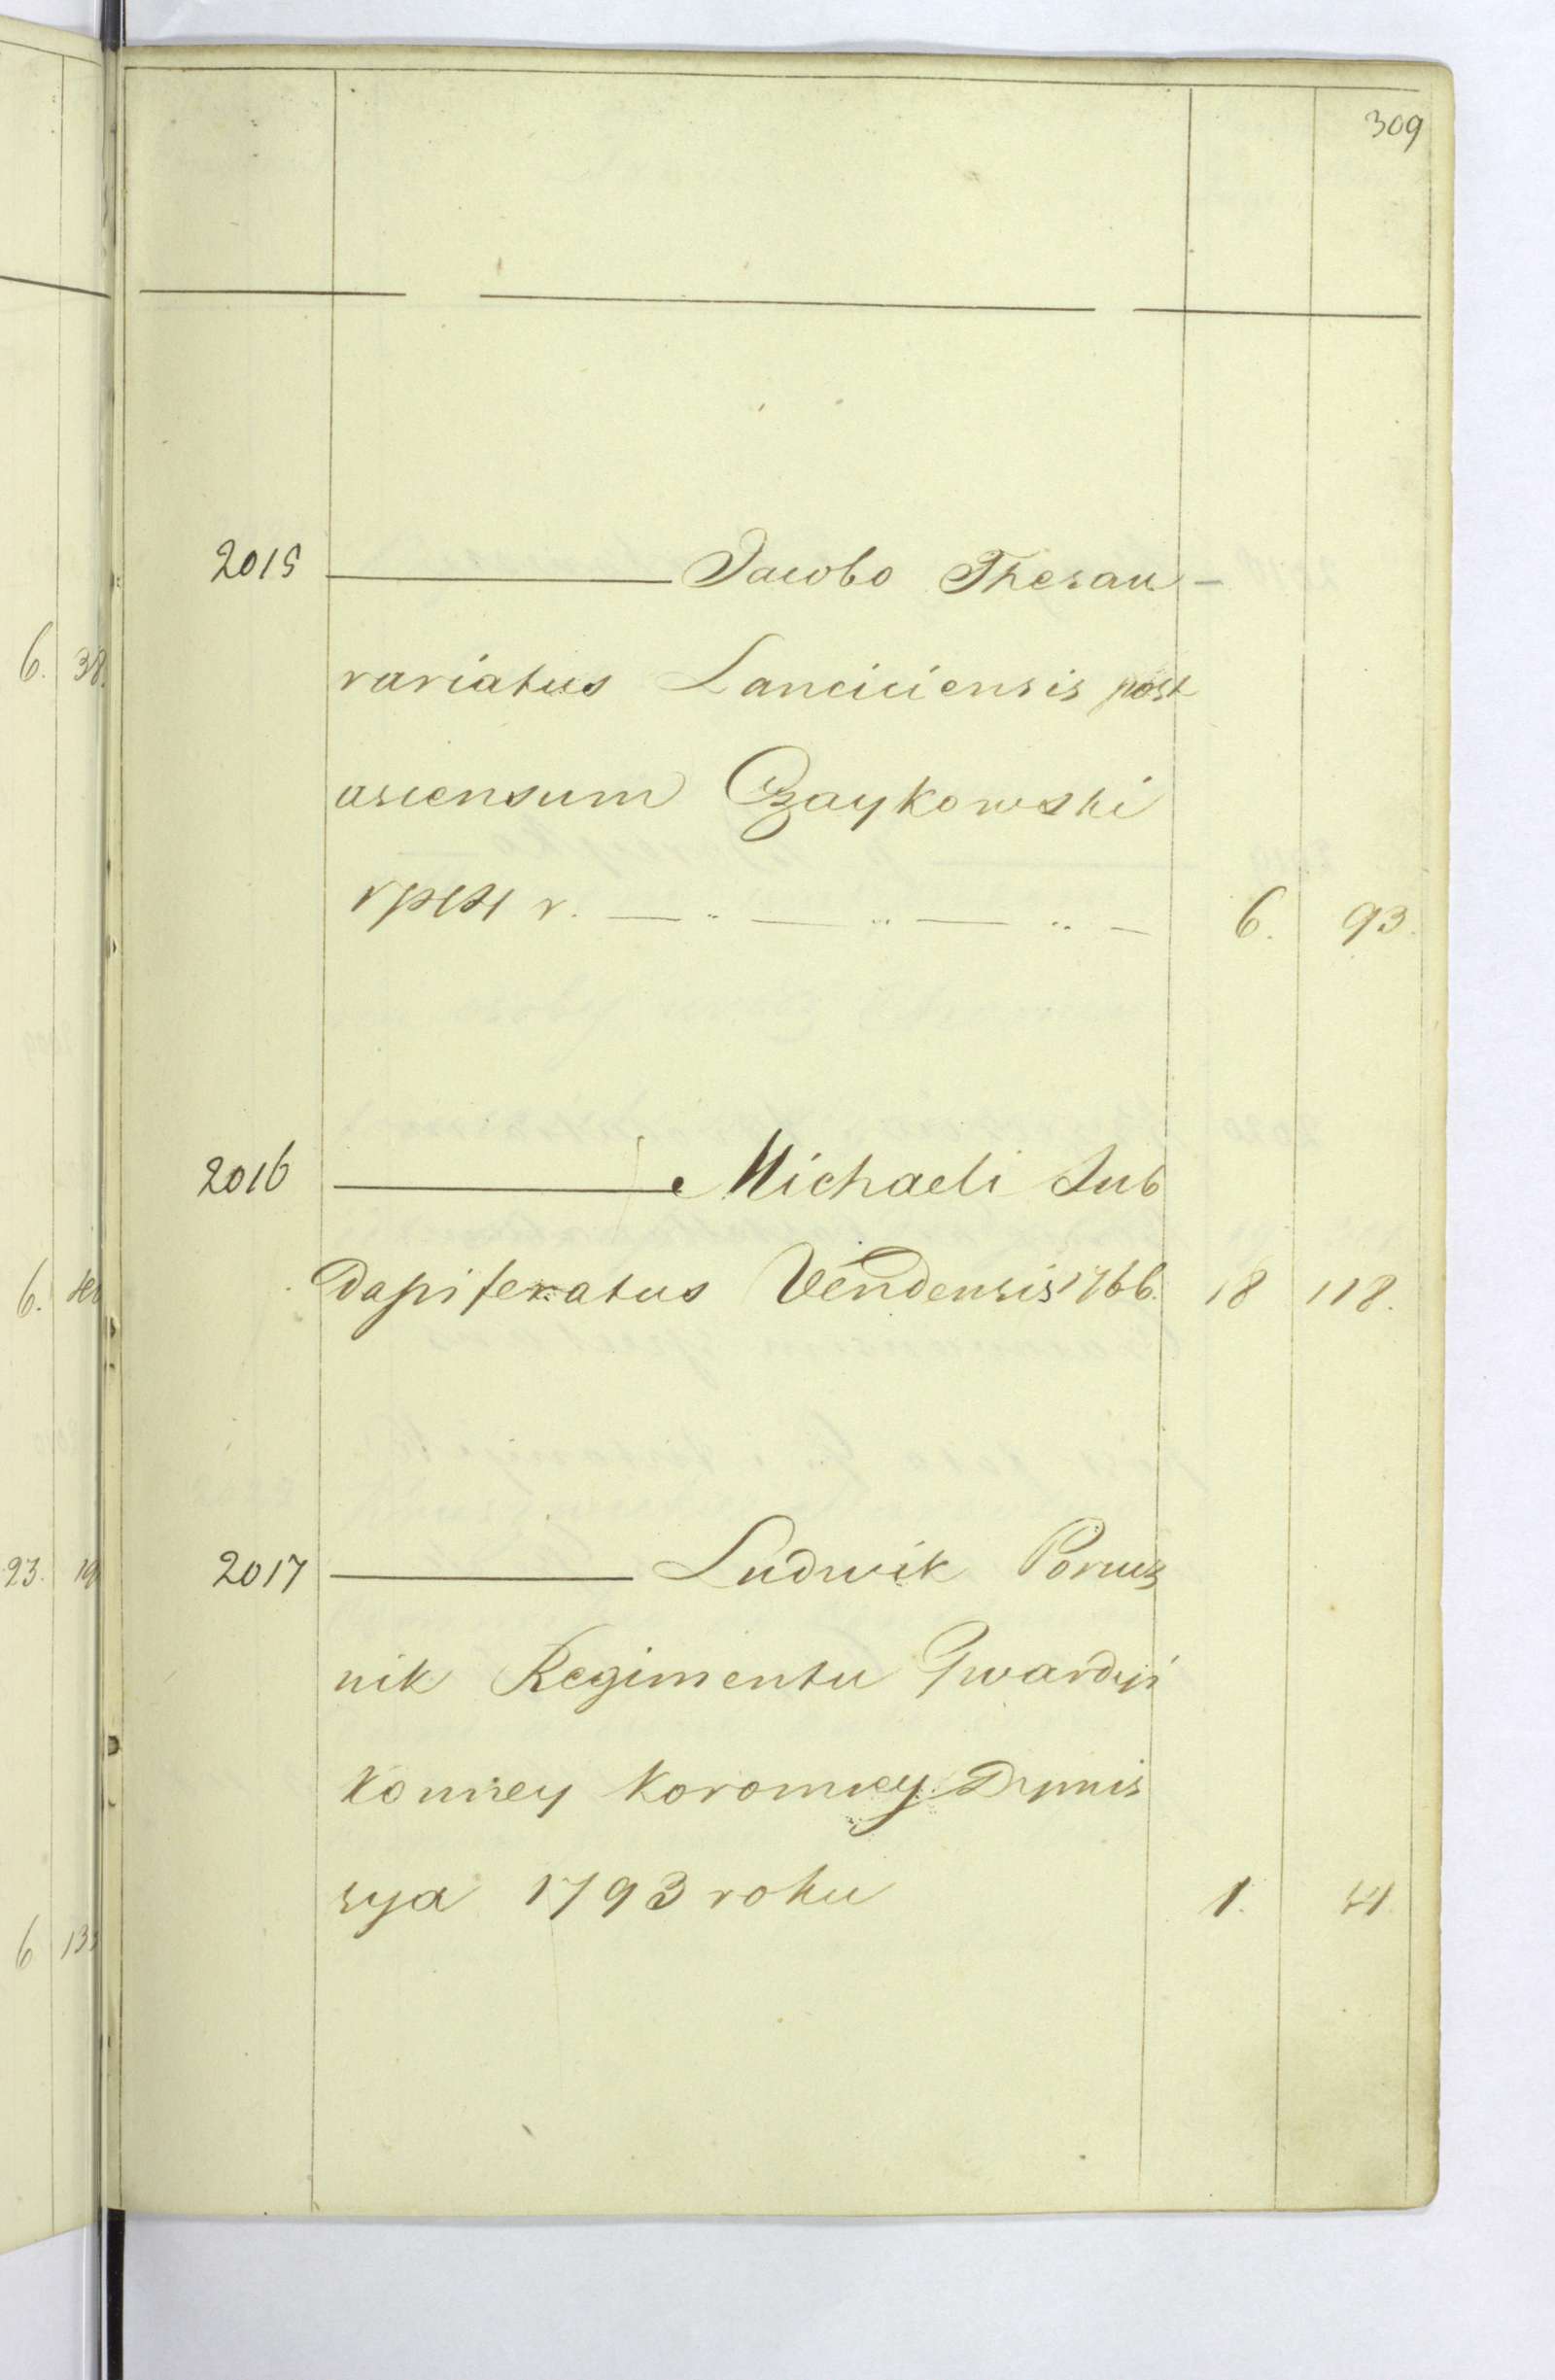 309
2015 Jacobo Thesau-
rariatus Lanciciensis post
ascensum Czaykowski
r. 6. 93.
2016 Michaeli Sub
Dapiferatus Vendensis 1766. 18 118.
2017 Ludwik Porucz
nik Regimentu Gwardyi
Konney Koronney Dymis
sya 1793 roku 1.
6. 38.
6.
23. 19
6 13